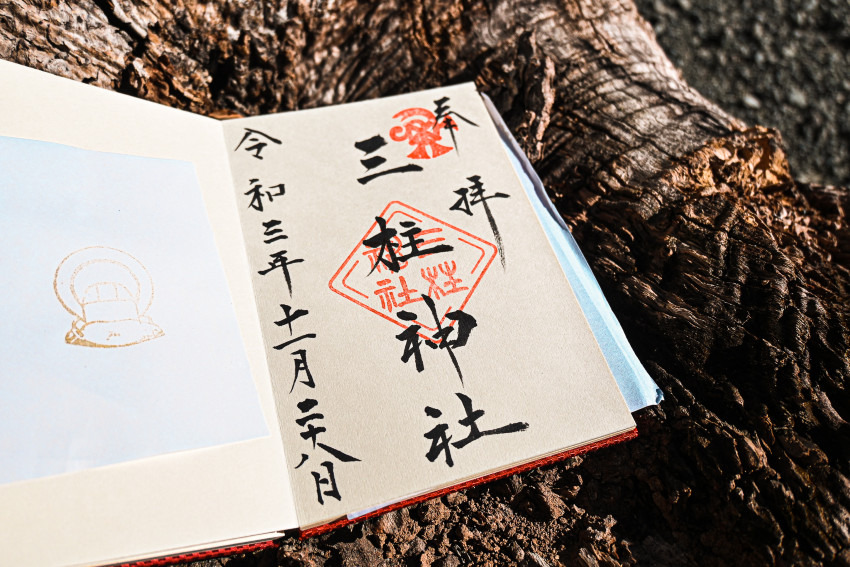 奉拝
三柱神社
三柱神社
令和三年十一月二十八日